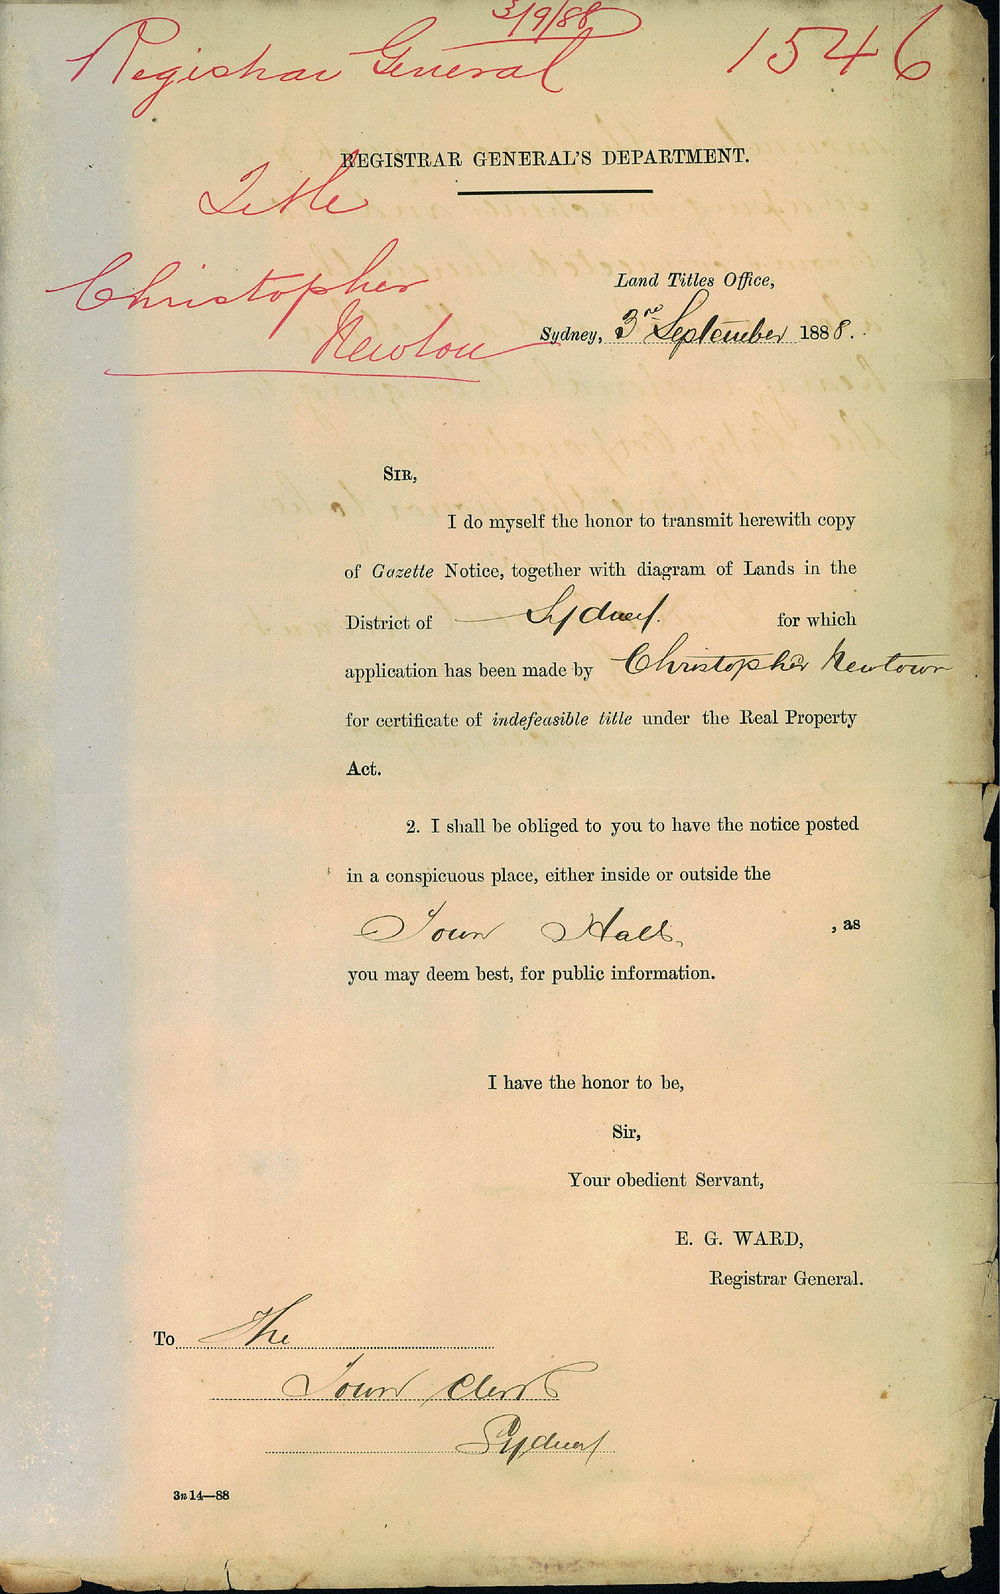 3/9/88
Registrar General 1546
REGISTRAR GENERAL'S DEPARTMENT.
Title
Christopher
Newton
Land Titles Office,
Sydney, 3rd September 1888.
SIR,
I do myself the honor to transmit herewith copy
of Gazette Notice, together with diagram of Lands in the
District of Sydney. for which
application has been made by Christopher Newtown
for certificate of indefeasible title under the Real Property
Act.
2. I shall be obliged to you to have the notice posted
in a conspicuous place, either inside or outside the
Town Hall, , as
you may deem best, for public information.
I have the honor to be,
Sir,
Your obedient Servant,
E. G. WARD,
Registrar General.
To The
Town Clerk
Sydney
3n 14—88